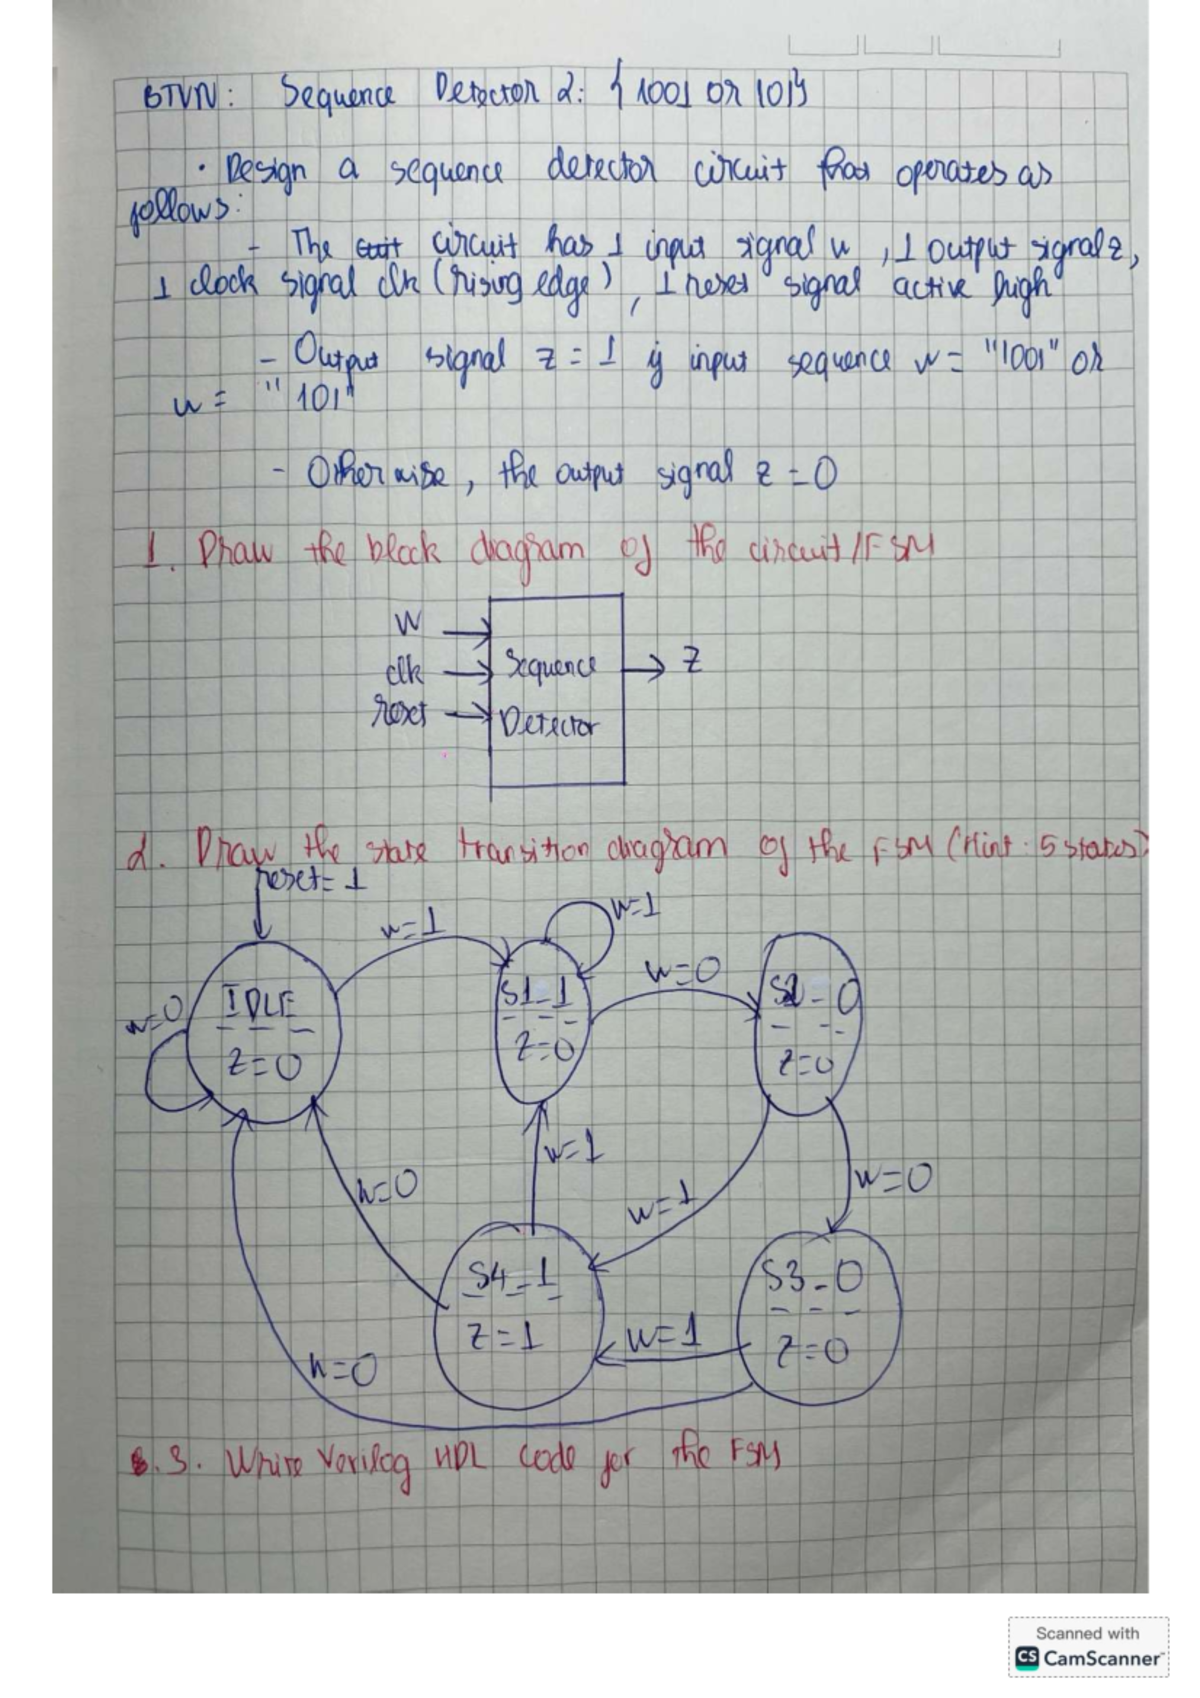 BTVN: Sequence Detector 2: {1001 or 101}
• Design a sequence detector circuit that operates as
follows:
- The circuit has 1 input signal w, 1 output signal z,
1 clock signal clk (rising edge), 1 reset signal active high
- Output signal z = 1 if input sequence w = "1001" or
w = "101"
- Otherwise, the output signal z = 0
1. Draw the block diagram of the circuit/FSM
W
clk
reset
Sequence
Detector
Z
2. Draw the state transition diagram of the FSM (Hint: 5 states)
reset=1
w=1
w=1
w=0
w=0
IDLE
Z=0
S1_1
Z=0
S2_0
Z=0
w=0
w=1
w=1
w=0
S4_1
Z=1
S3_0
Z=0
w=1
w=0
3. Write Verilog HDL code for the FSM
Scanned with
CS CamScanner